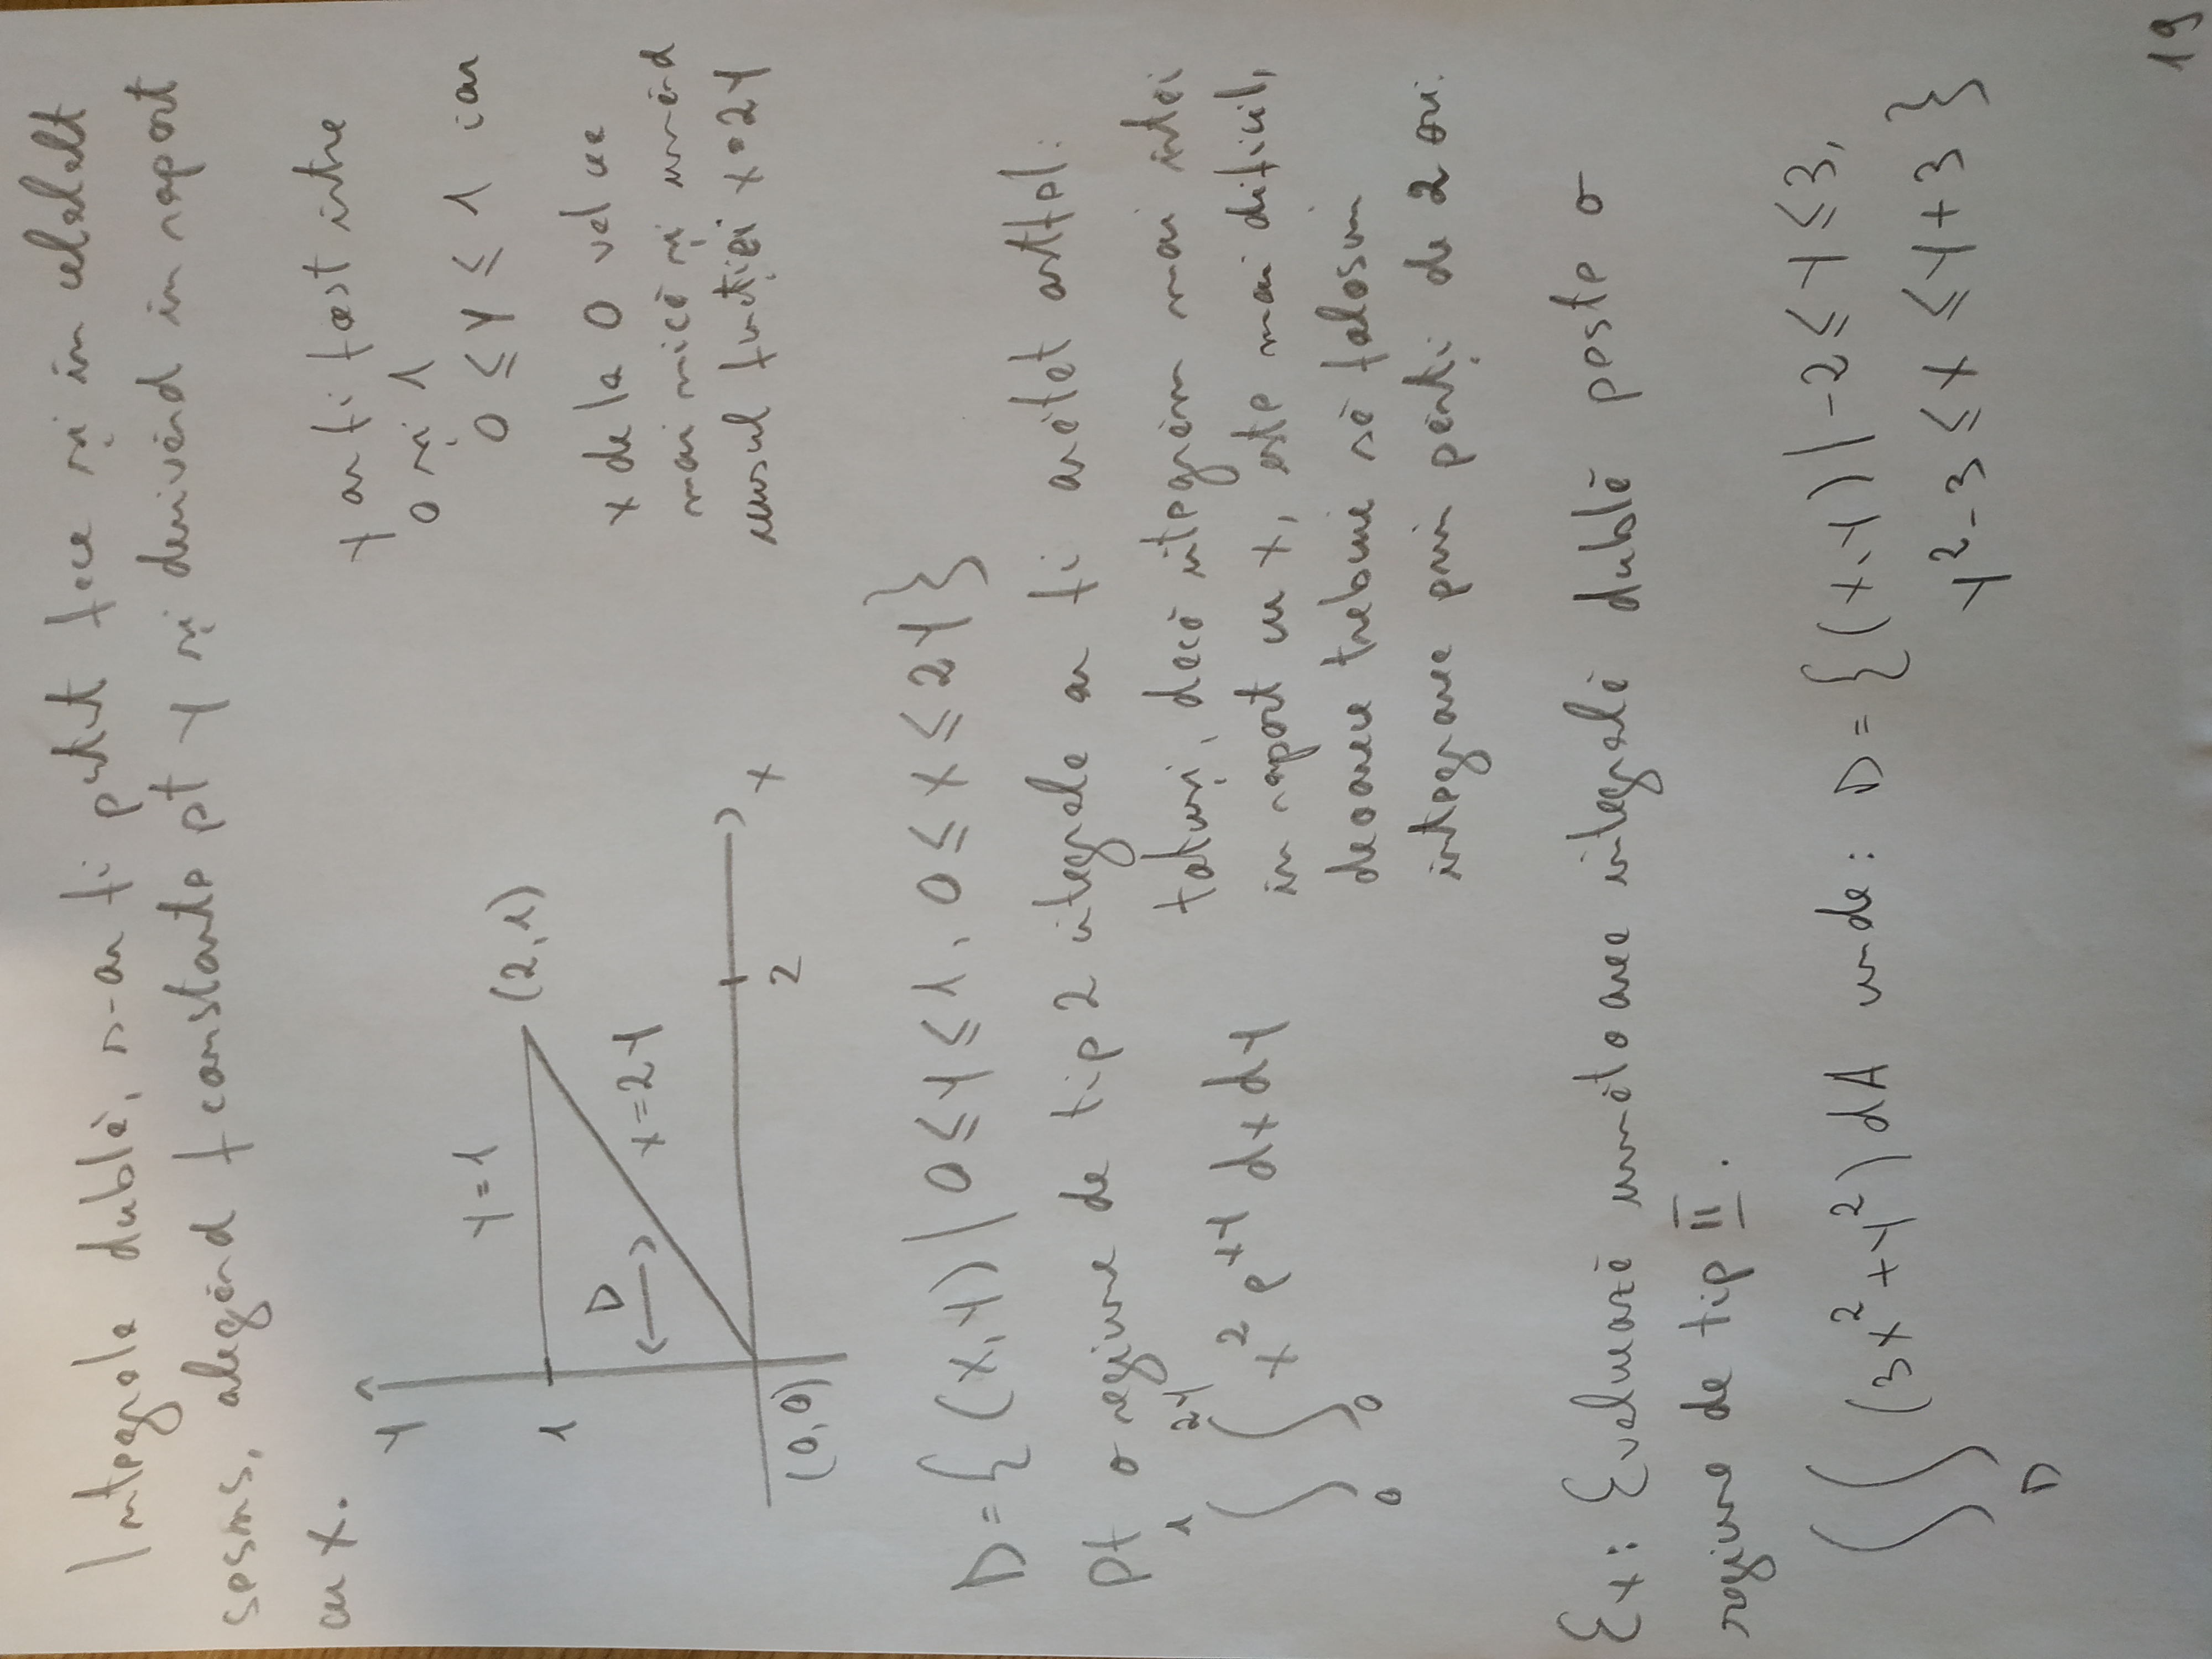 Integrala dublă, s-ar fi putut face și în celălalt
sens, alegând f constante pt y și derivând în raport
cu x.
y ar fi fost între
0 și 1
0 ≤ y ≤ 1 iar
x de la 0 val cea
mai mică și urmând
cursul funcției x = 2y
y
y = 1
(2, 1)
1
D
x = 2y
x
2
(0, 0)
D = {(x, y) | 0 ≤ y ≤ 1, 0 ≤ x ≤ 2y}
Pt o regiune de tip 2 integrala ar fi arătat astfel:
∫₀¹ ∫₀²ʸ x² e^xy dx dy
totuși, dacă integrăm mai întâi
în raport cu x, este mai dificil,
deoarece trebuie să folosim
integrarea prin părți de 2 ori.
Ex: Evaluează următoarea integrală dublă peste o
regiune de tip II.
∫∫ (3x² + y²) dA unde: D = {(x, y) | -2 ≤ y ≤ 3,
y² - 3 ≤ x ≤ y + 3}
D
19